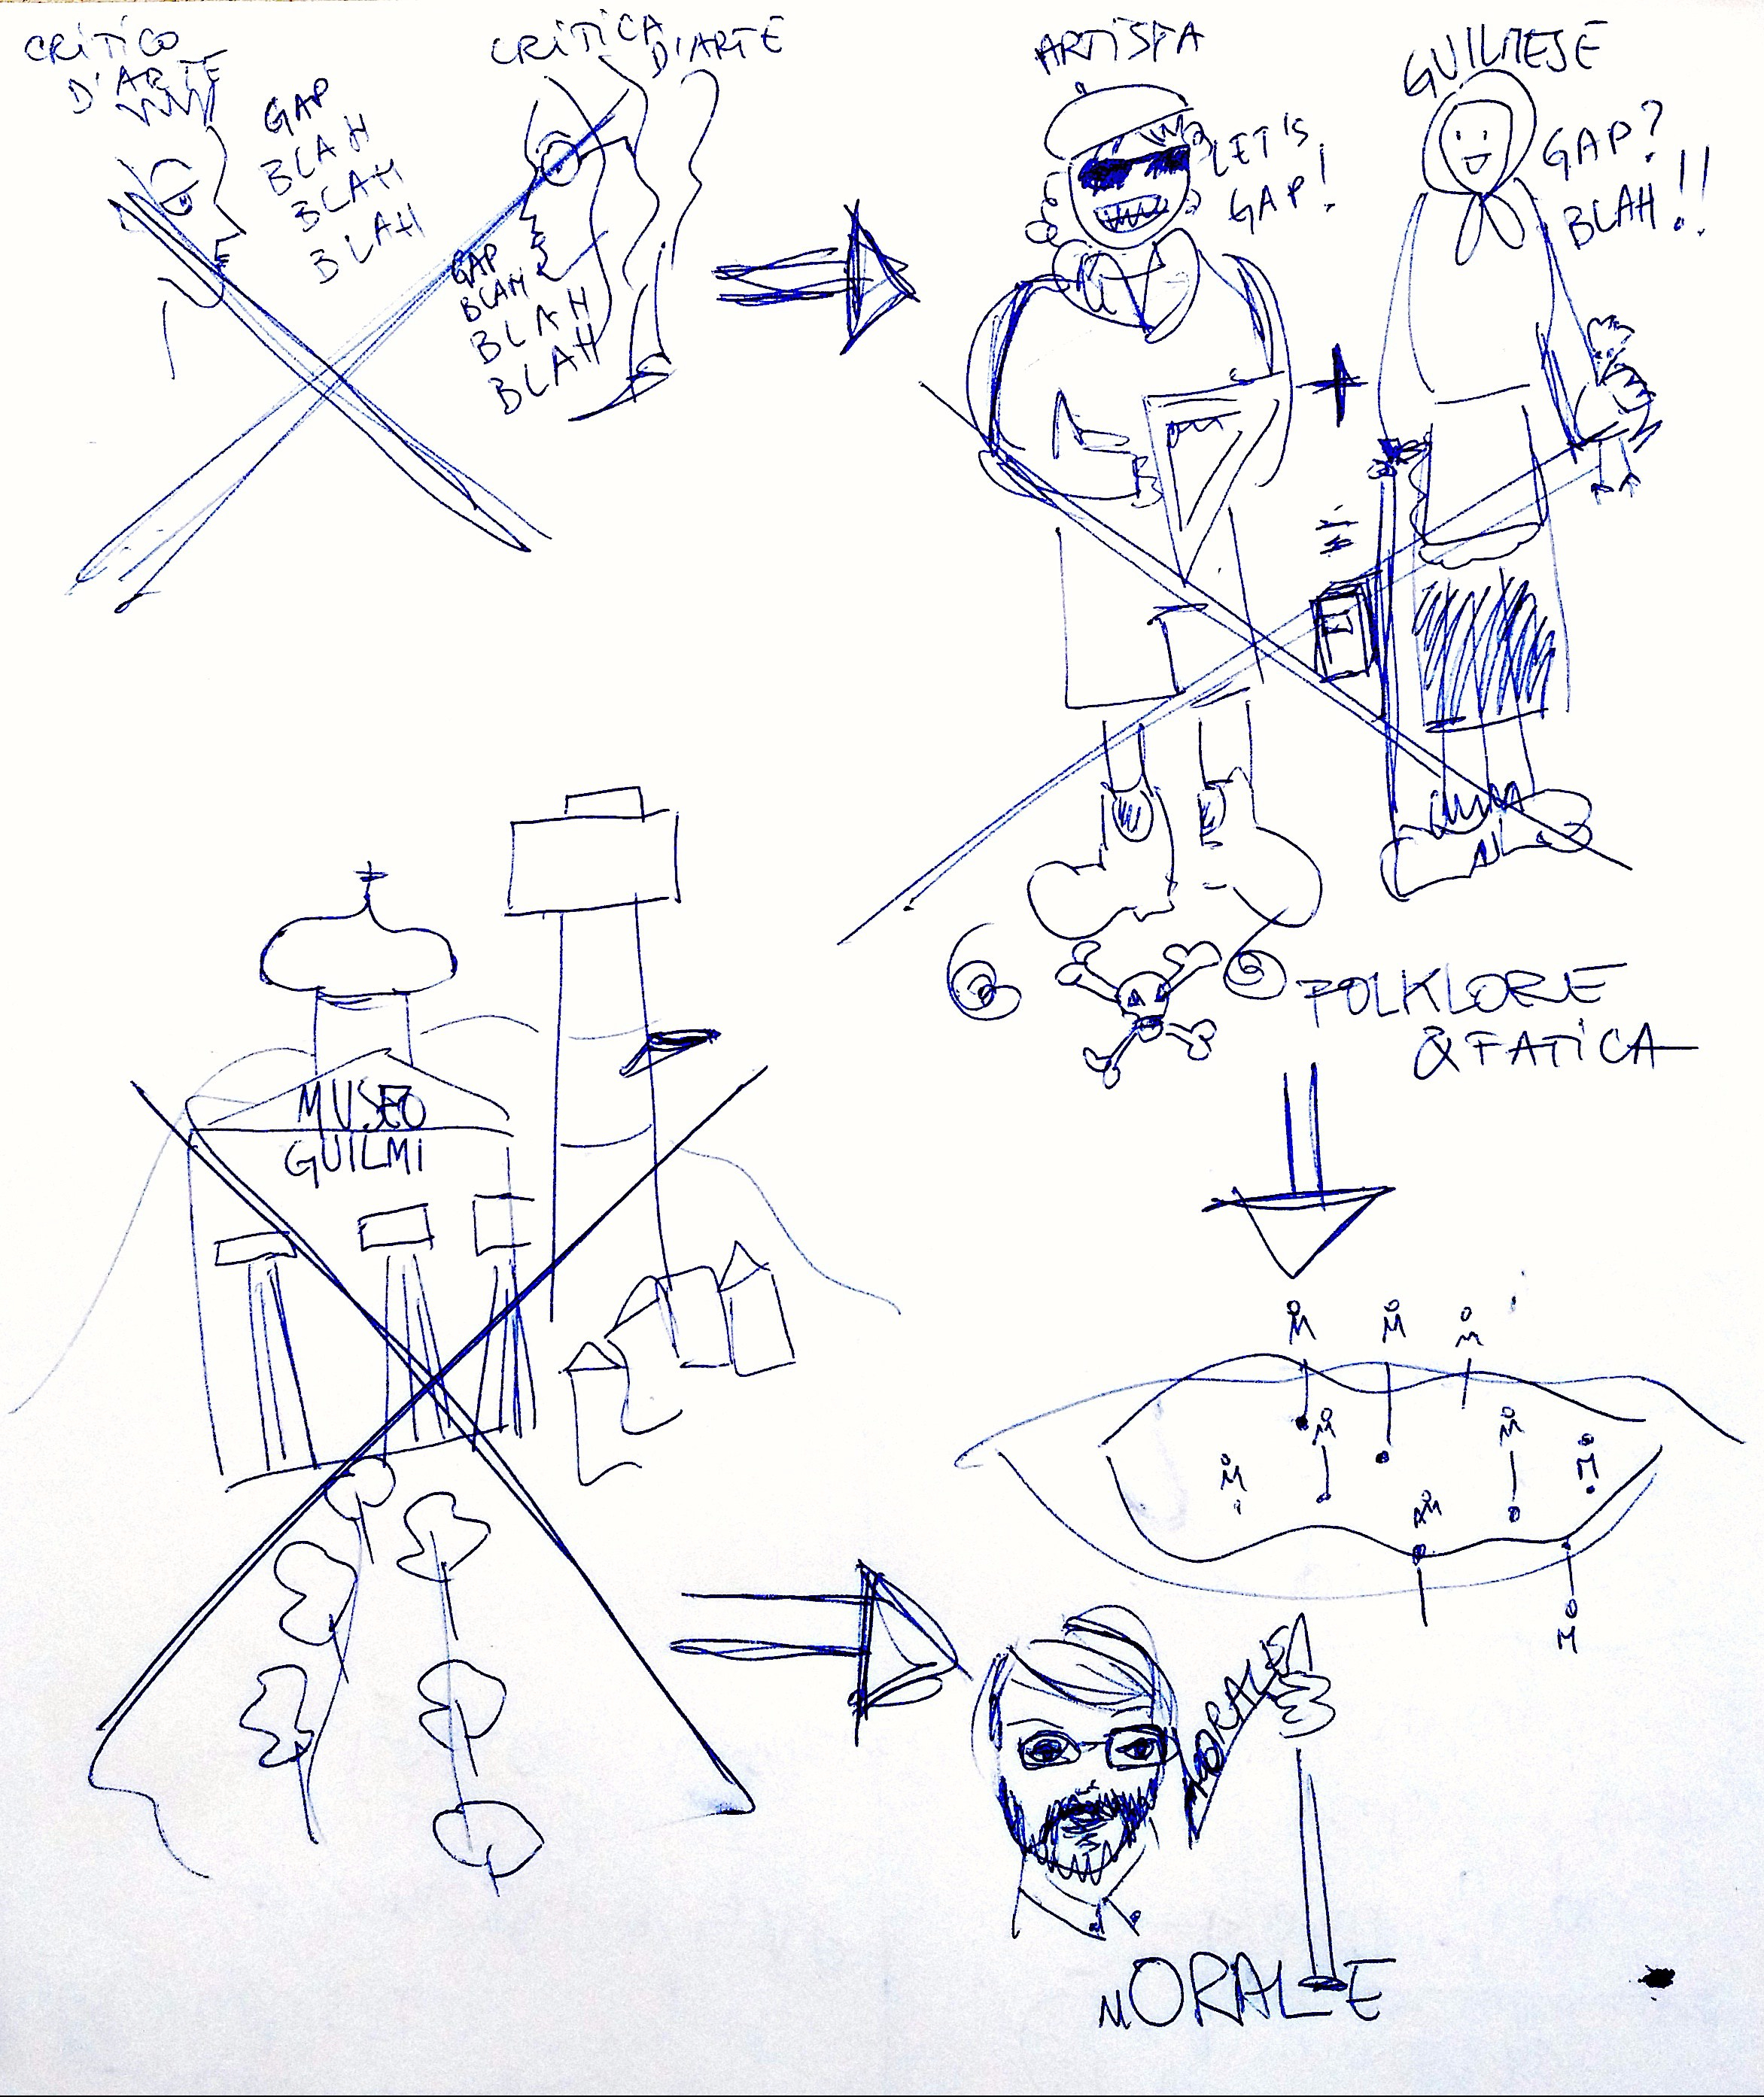 CRITICO
D'ARTE
GAP
BLAH
BLAH
BLAH
CRITICA
D'ARTE
GAP
BLAH
BLAH
BLAH
ARTISTA
LET'S
GAP!
GUILMESE
GAP?
BLAH!!
FOLKLORE
& FATICA
MUSEO
GUILMI
MORALE